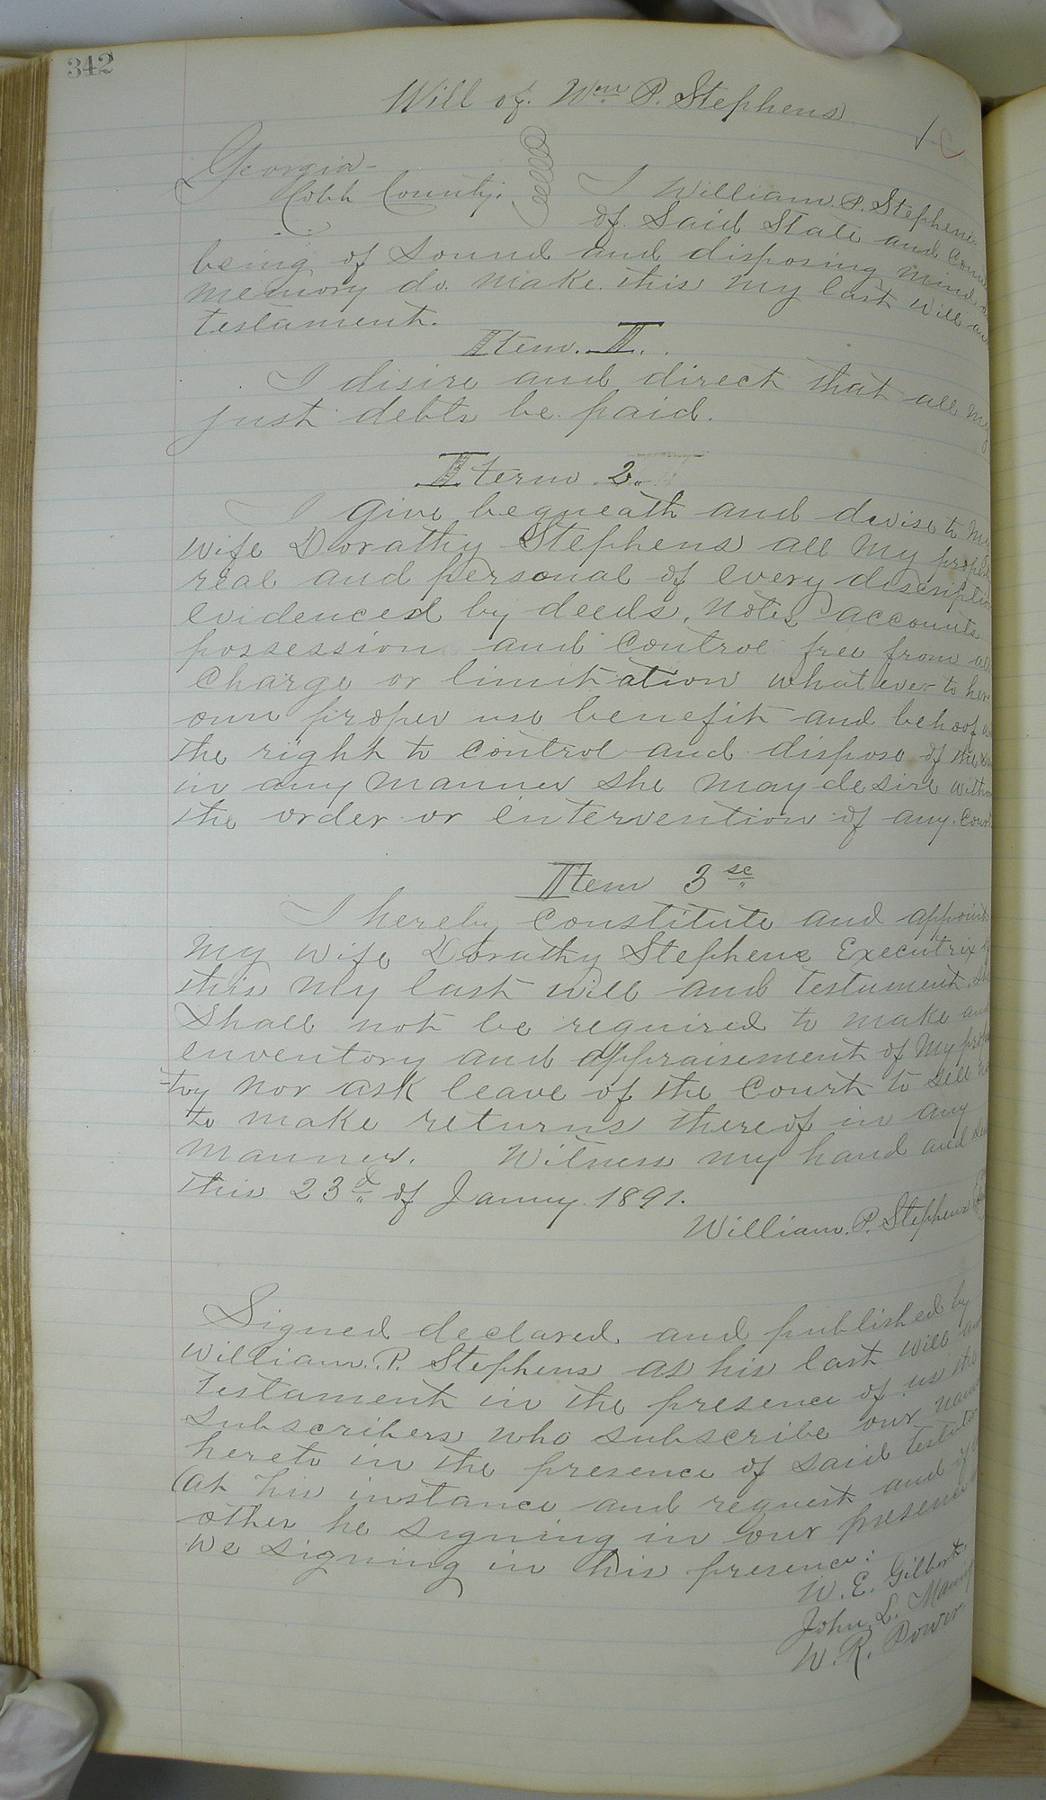 342
Will of Wm P. Stephens
Georgia
Cobb County.
I William. P. Stephens
of Said State and Coun
being of Sound and disposing mind
memory do make this my last will an
testament.
Item. I.
I disire and direct that all my
just debts be paid.
Iterm 2.
I Give bequeath and devise to my
wife Dorathy Stephens all my prope
real and personal of every discriptio
evidenced by deeds, notes accounts
possession and Control free from
Charge or limitation whatever to her
own proper use benefit and behoof
the right to control and dispose of the
in any manner she may desire witho
the order or intervention of any Cour
Item 3
I hereby Constitute and appoint
my wife Dorathy Stephens Executrix
this my last will and testament.
Shall not be required to make an
enventory and appraisement of my prop
-ty nor ask leave of the Court to sell
to make returns thereof in any
manner. Witness my hand and
this 23d of Janny. 1891.
William. P. Stephens
Signed declared and published by
William. P. Stephens as his last will an
testament in the presence of us the
subscribers who subscribe our name
hereto in the presence of said testator
at his instance and request and of
other he signing in our presence
we signing in his presence:
W. E. Gilbert
John L. Manning
W. R. Power